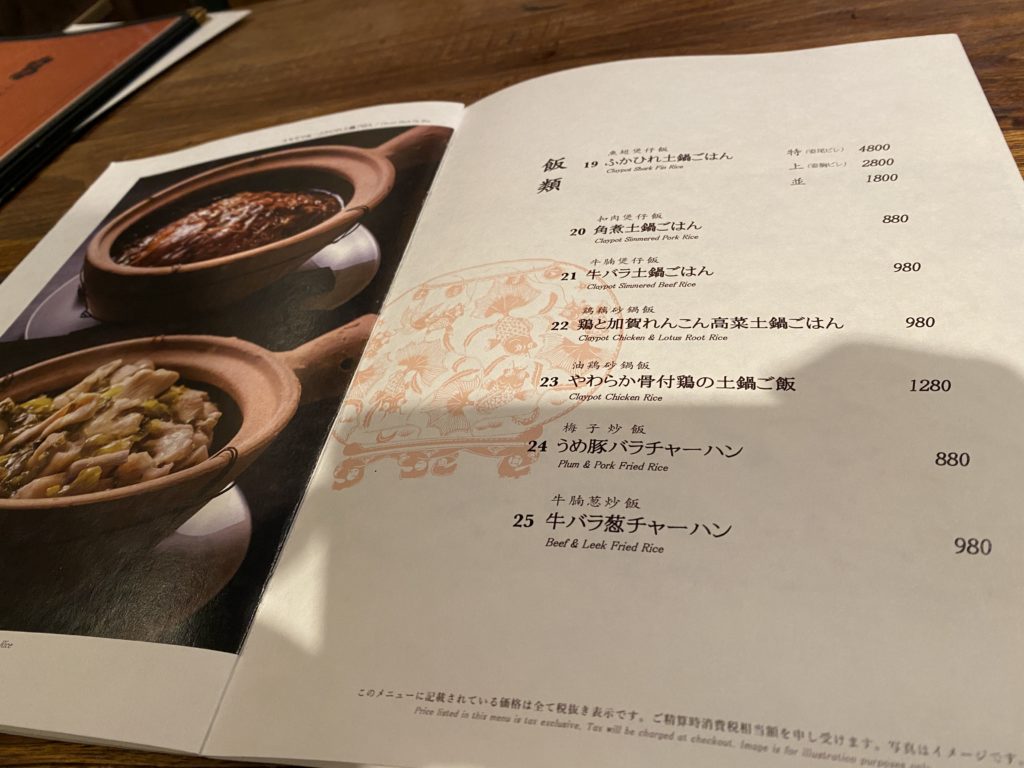 飯類
魚翅煲仔飯
19 ふかひれ土鍋ごはん
Claypot Shark Fin Rice
特 4800
上 2800
並 1800
扣肉煲仔飯
20 角煮土鍋ごはん 880
Claypot Simmered Pork Rice
牛腩煲仔飯
21 牛バラ土鍋ごはん 980
Claypot Simmered Beef Rice
鶏藕砂鍋飯
22 鶏と加賀れんこん高菜土鍋ごはん 980
Claypot Chicken & Lotus Root Rice
油鶏砂鍋飯
23 やわらか骨付鶏の土鍋ご飯 1280
Claypot Chicken Rice
梅子炒飯
24 うめ豚バラチャーハン 880
Plum & Pork Fried Rice
牛腩葱炒飯
25 牛バラ葱チャーハン 980
Beef & Leek Fried Rice
Rice
このメニューに記載されている価格は全て税抜き表示です。ご精算時消費税相当額を申し受けます。写真はイメージです。
Price listed in this menu is tax exclusive, Tax will be charged at checkout. Image is for illustration purposes only